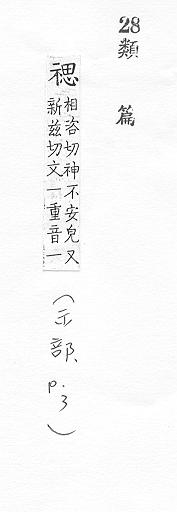 28
類篇
禗
相咨切神不安皃又
新兹切文一重音一
(示部, p.3)